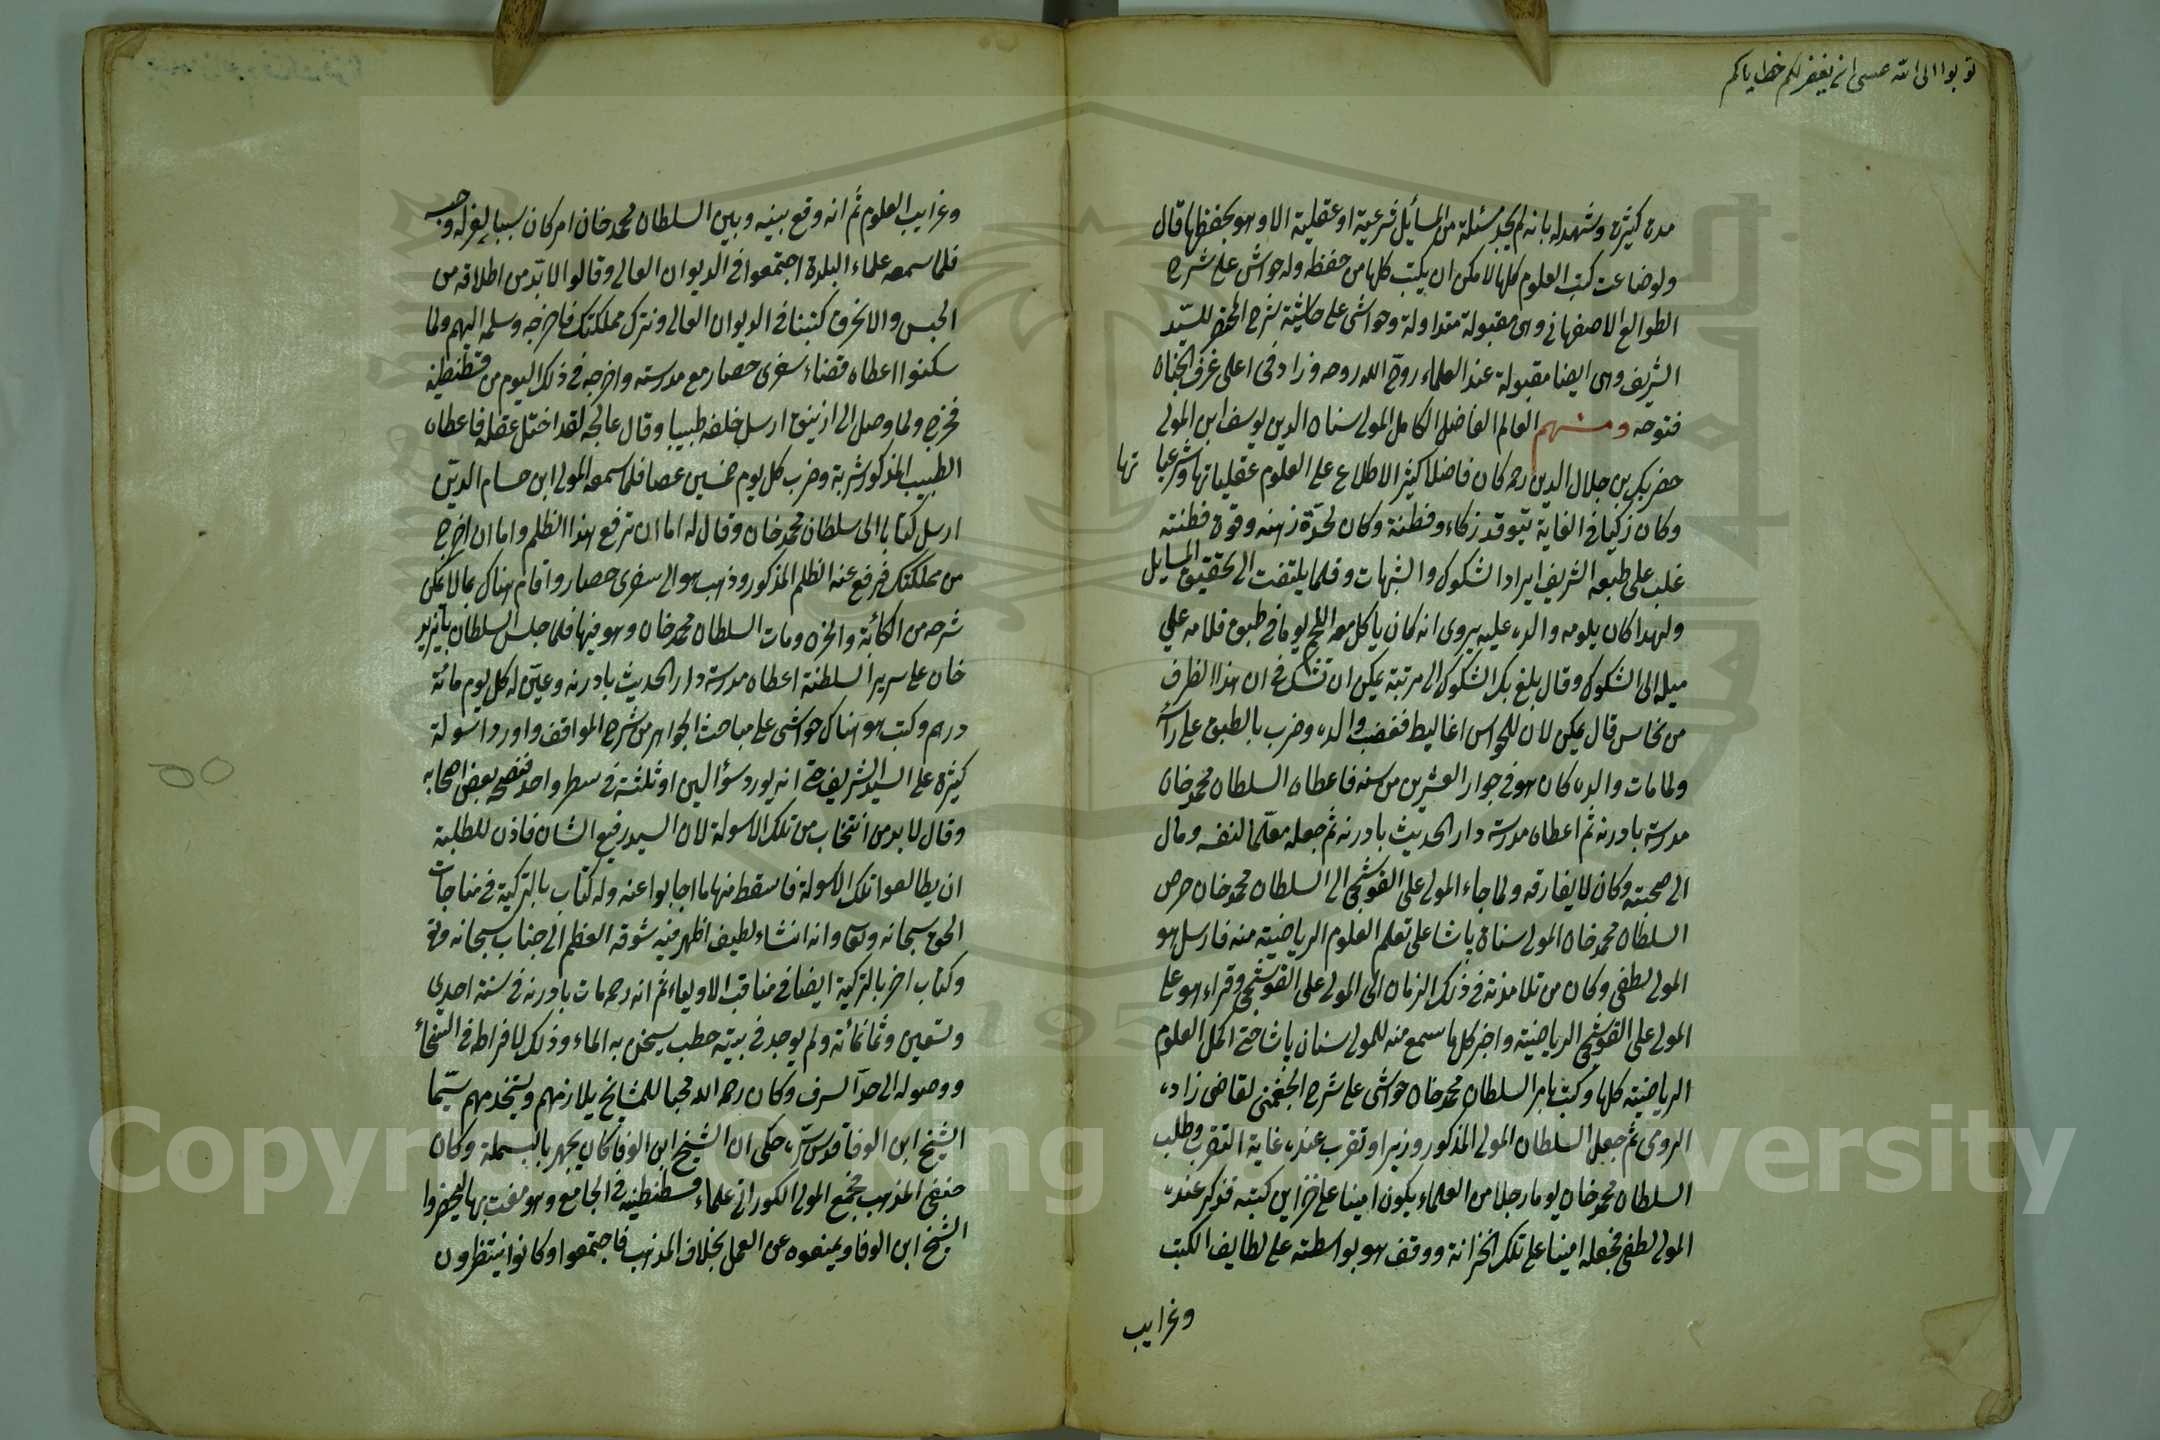 توبوا الى الله عسى ان يغفر لكم خطاياكم
مدة كثيرة وشهد له بانه لم يجد مسئلة من المسائل شرعية او عقلية الا وهو يحفظها قال
ولو ضاعت كتب العلوم كلها لامكن ان يكتب كلها من حفظه وله حواش على شرح
الطوالع للاصفهاني وهى مقبولة متداولة وحواشى على حاشية شرح المختصر للسيد
الشريف وهى ايضا مقبولة عند العلماء روح الله روحه وزاد فى اعلى غرف الجنان
فتوحه ومنهم العالم الفاضل الكامل المولى سنان الدين يوسف ابن المولى
حضر بك بن جلال الدين رحمه كان فاضلا كثير الاطلاع على العلوم عقلياتها وشرعياتها
وكان ذكيا فى الغاية يتوقد ذكاء وفطنة وكان لحدة ذهنه وقوة فطنته
غلب على طبعه الشريف ايراد الشكوك والشبهات وقلما يلتفت الى تحقيق المسايل
ولهذا كان يلومه والده عليه يروى انه كان ياكل معه اللحم يوما فى طبق فلامه على
ميله الى الشكوك وقال بلغ بك الشكوك الى مرتبة يمكن ان تشك فى ان هذا الظرف
من نحاس قال يمكن لان للحواس اغاليط فغضب والده وضرب بالطبق على راسه
ولما مات والده كان هو فى جوار العشرين من سنه فاعطاه السلطان محمد خان
مدرسة بادرنه ثم اعطاه مدرسة دار الحديث بادرنه ثم جعله معلما لنفسه ومال
الى صحبته وكان لا يفارقه ولما جاء المولى على القوشجى الى السلطان محمد خان حرص
السلطان محمد خان المولى سنان باشا على تعلم العلوم الرياضية منه فارسل هو
المولى لطفى وكان من تلامذته فى ذلك الزمان الى المولى على القوشجى وقراء هو على
المولى على القوشجى الرياضية واخبر كلما سمع منه للمولى سنان باشا حتى اكمل العلوم
الرياضية كلها وكتب بامر السلطان محمد خان حواشى على شرح الجغمنى لقاضى زاده
الرومى ثم جعل السلطان المولى المذكور وزيرا وتقرب عنده غاية التقرب وطلب
السلطان محمد خان يوما رجلا من العلماء يكون امينا على خزاين كتبه فذكر عنده
المولى لطفى فجعله امينا على تلك الخزانة ووقف هو بواسطته على لطايف الكتب
وغرايب
وغرايب العلوم ثم انه وقع بينه وبين السلطان محمد خان امر كان سببا لعزله وحبسه
فلما سمعه علماء البلدة اجتمعوا فى الديوان العالى وقالوا لا بد من اطلاقه من
الحبس والا نحرق كتبنا فى الديوان العالى ونترك مملكتك فاخرجه وسلمه اليهم ولما
سكنوا اعطاه قضاء سفرى حصار مع مدرسته واخرجه فى ذلك اليوم من قسطنطينية
فخرج ولما وصل الى ازنيق ارسل خلفه طبيبا وقال عالجه لقد اختل عقله فاعطاه
الطبيب المذكور شربة وضرب كل يوم خمسين عصا فلما سمعه المولى ابن حسام الدين
ارسل كتابا الى سلطان محمد خان وقال له اما ان ترفع هذا الظلم واما ان اخرج
من مملكتك فرفع عنه الظلم المذكور وذهب هو الى سفرى حصار واقام هناك بما لا يمكن
شرحه من الكآبة والحزن ومات السلطان محمد خان وهو فيها فلما جلس السلطان بايزيد
خان على سرير السلطنة اعطاه مدرسة دار الحديث بادرنه وعين له كل يوم مائة
درهم وكتب هو هناك حواشى على مباحث الجواهر من شرح المواقف واورد اسولة
كثيرة على السيد الشريف حتى انه يورد سؤالين او ثلثة فى سطر واحد فنصحه بعض اصحابه
وقال لا بد من انتخاب من تلك الاسولة لان السيد رفيع الشان فاذن للطلبة
ان يطالعوا تلك الاسولة فاسقط منها ما اجابوا عنه وله كتاب بالتركية فى مناجات
الحق سبحانه وتعا وانه انشاء لطيف اظهر فيه شوقه العظم الى جناب سبحانه وتع
وكتاب اخر بالتركية ايضا فى مناقب الاولياء ثم انه رحمه مات بادرنه فى سنة احدى
وتسعين وثمانمائة ولم يوجد فى بيته حطب يسخن به الماء وذلك لافراطه فى السخاء
ووصوله الى حد السرف وكان رحمه الله محبا للمشايخ يلازمهم ويستخدمهم سيما
الشيخ ابن الوفا قدس سره حكى ان الشيخ ابن الوفا كان يجهر بالبسملة وكان
حنفى المذهب فجمع المولى الكورانى علماء قسطنطينه فى الجامع وهو مفت بها ليحضروا
الشيخ ابن الوفا ويمنعوه عن العمل بخلاف المذهب فاجتمعوا وكانوا ينتظرون
Copyright © King Saud University